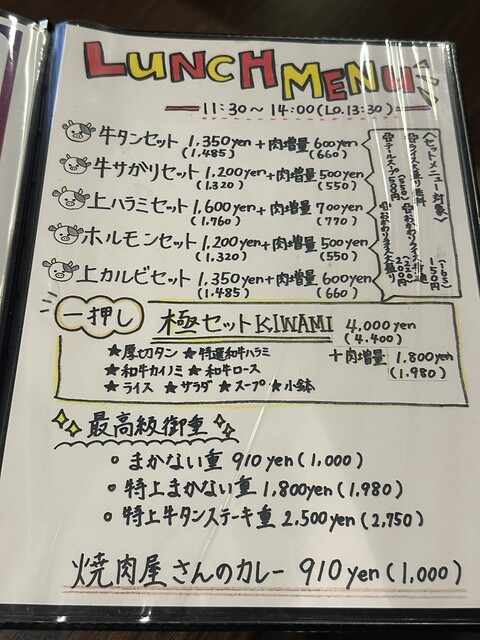 LUNCH MENU
11:30～14:00(Lo.13:30)
牛タンセット 1,350yen+肉増量 600yen
(1.485) (660)
牛サガリセット 1,200yen+肉増量 500yen
(1.320) (550)
上ハラミセット 1,600yen+肉増量 700yen
(1.760) (770)
ホルモンセット 1,200yen+肉増量 500yen
(1.320) (550)
上カルビセット 1,350yen+肉増量 600yen
(1.485) (660)
〈セットメニュー対象〉
ライス大盛り無料
テールスープ 500円(550)
150円(165)
おかわりライス大盛り 200円(220)
一押し 極セットKIWAMI 4,000yen
(4.400)
★厚切タン ★特選和牛ハラミ +肉増量 1,800yen
★和牛カイノミ ★和牛ロース (1.980)
★ライス ★サラダ ★スープ ★小鉢
最高級御重
○ まかない重 910yen(1,000)
○ 特上まかない重 1,800yen(1,980)
○ 特上牛タンステーキ重 2,500yen(2,750)
焼肉屋さんのカレー 910yen(1,000)